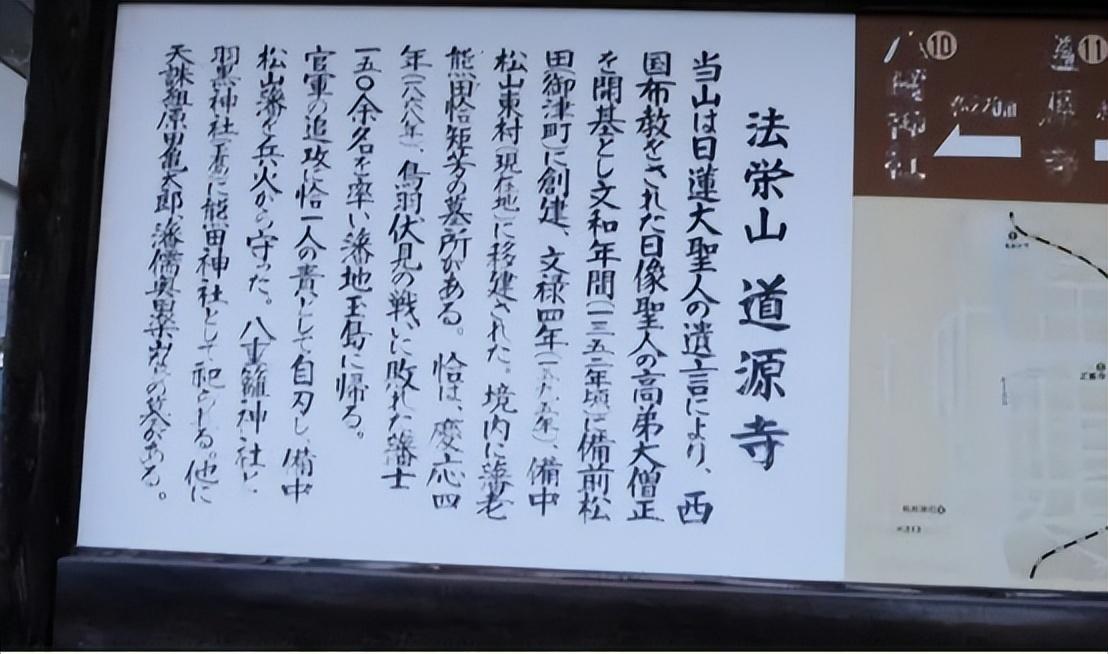 法栄山 道源寺
当山は日蓮大聖人の遺言により、西
国布教をされた日像聖人の高弟大僧正
を開基とし文和年間(一三五二年頃)に備前松
田(御津町)に創建、文禄四年(一五九五年)、備中
松山東村(現在地)に移建された。境内に藩老
熊田恰矩芳の墓所がある。恰は、慶応四
年(一八六八年)、鳥羽伏見の戦いに敗れた藩士
一五〇余名を率い藩地玉島に帰る。
官軍の追攻に恰一人の責として自刃し、備中
松山藩を兵火から守った。八重籬神社と
羽黒神社(玉島)に熊田神社として祀られる。他に
天誅組原田亀太郎、藩儒奥田楽山などの墓がある。
⑩
八幡神社
⑪
道源寺